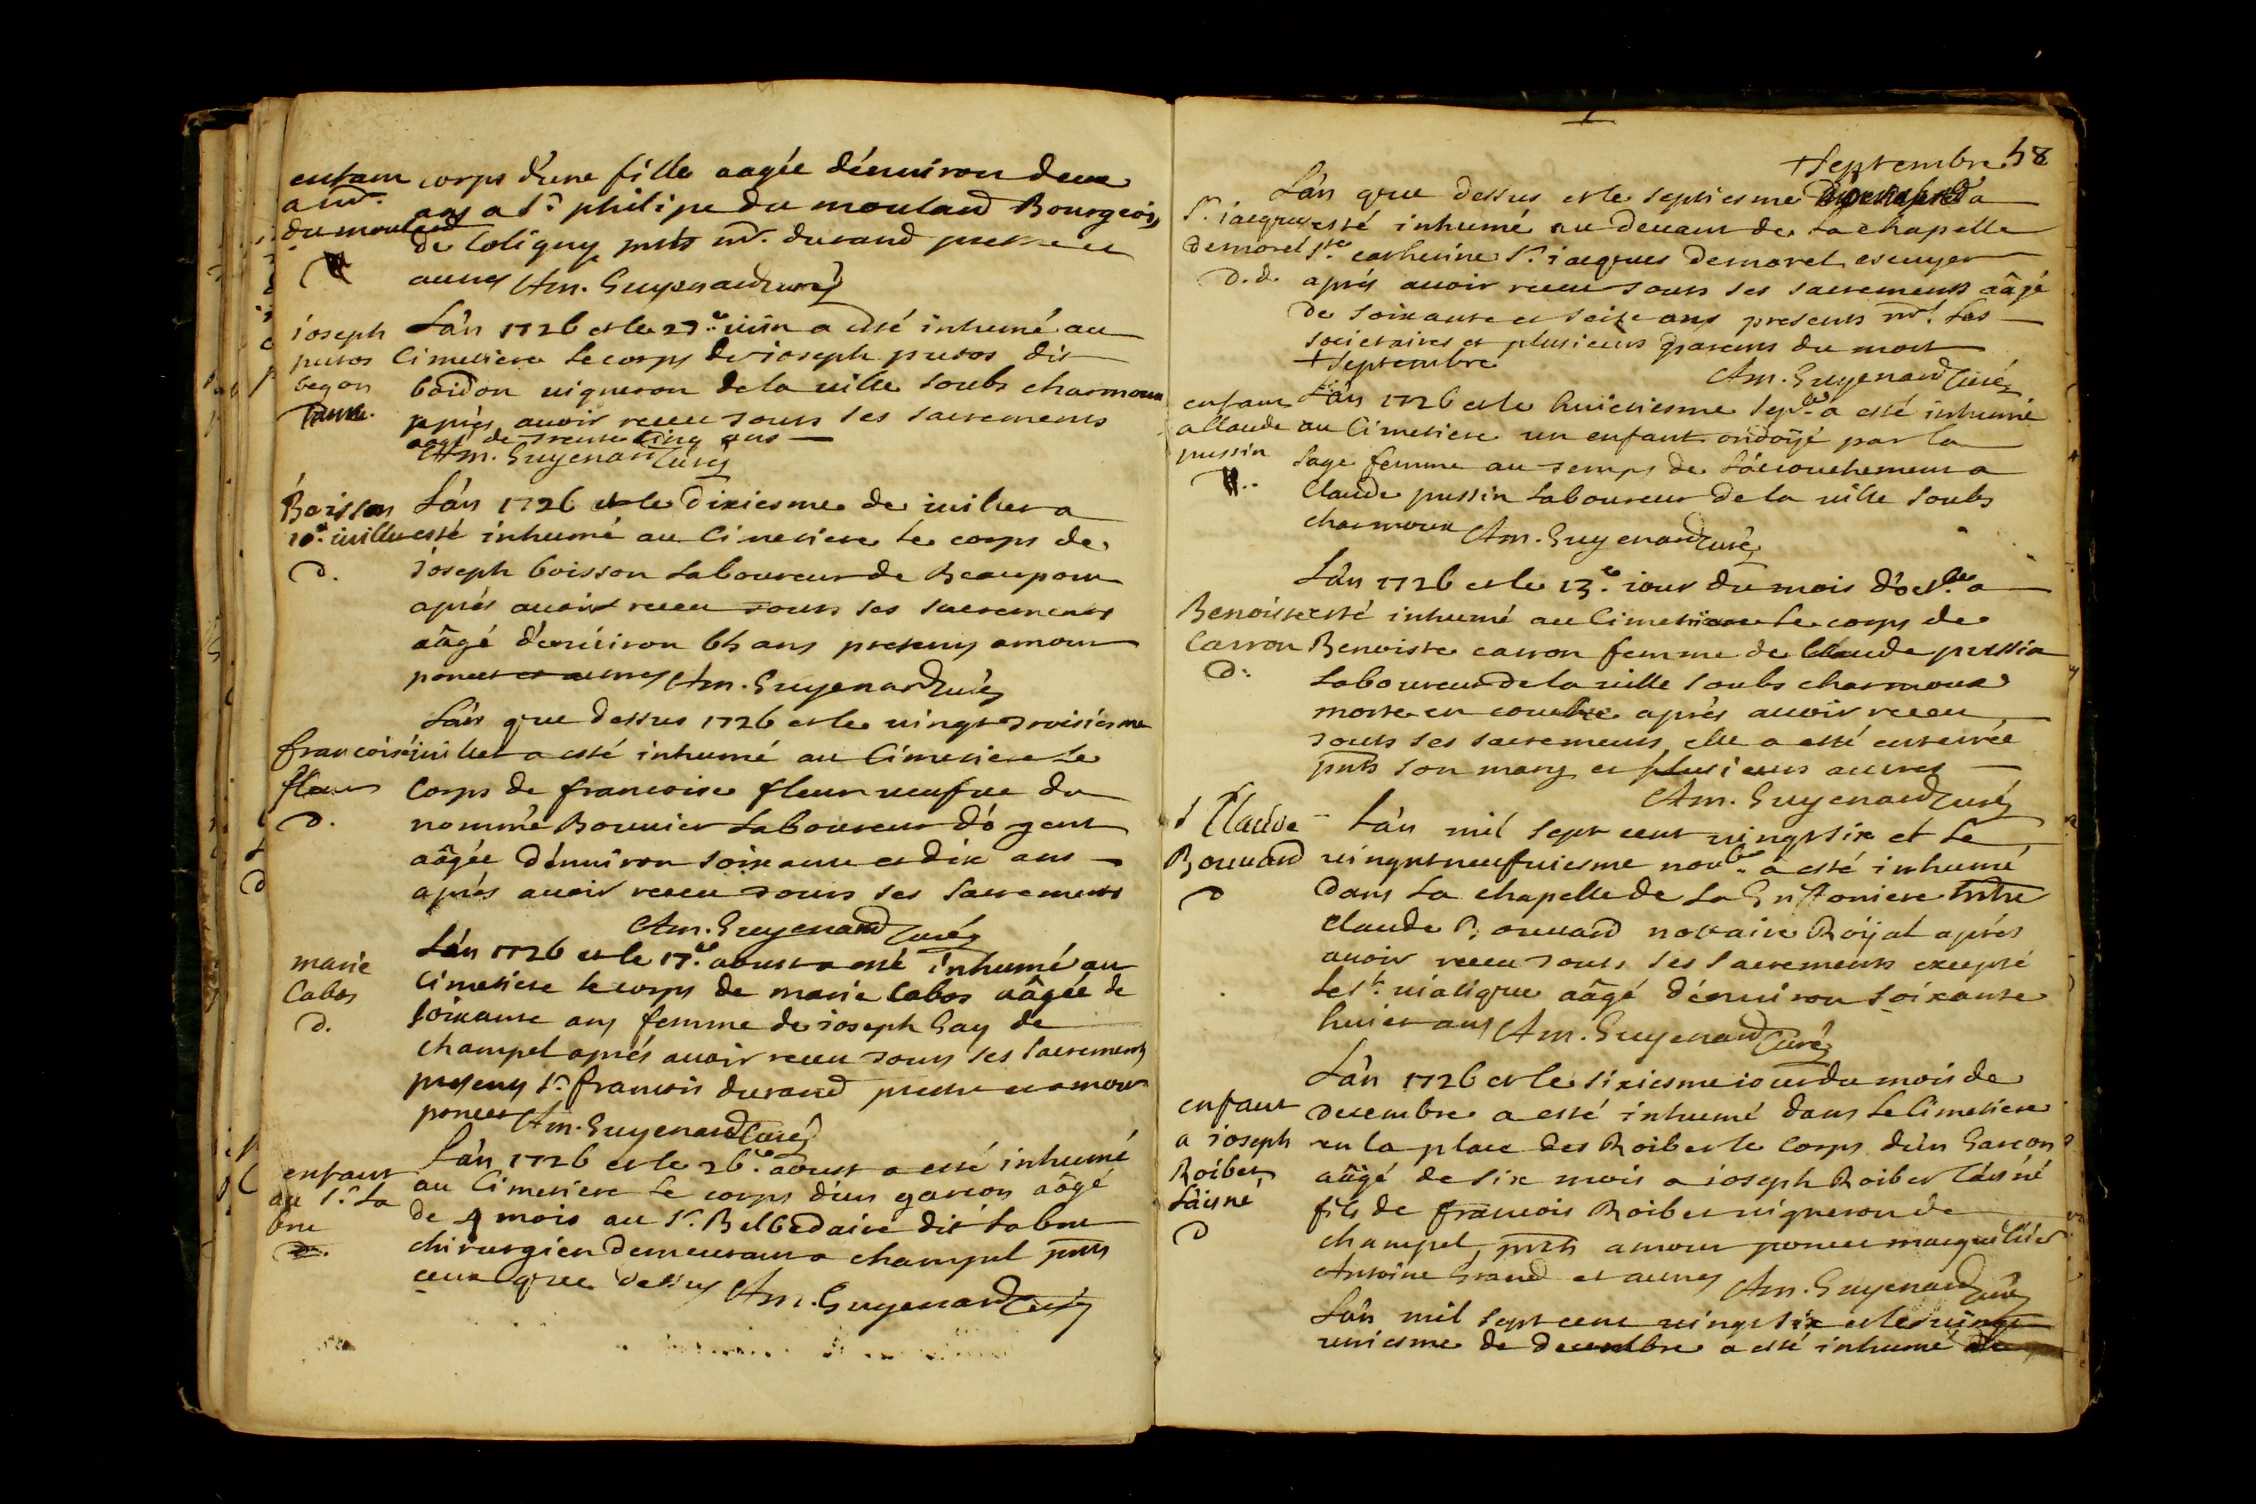 enfant
a mr.
du mouland
corps d'une fille aagée d'enuiron deux
ans a Sr philipe du mouland Bourgeois
de Coligny pnts mr. durand prestre et
autres Am. Guyenard curé
ioseph
putos
begon
L'an 1726 et le 27e. iuin a esté inhumé au
Cimetiere le corps de ioseph putos dit
baidon uigneron de la uille soubs charmoux
après auoir receu tous ses sacrements
aagé de trente cinq ans
Am. Guyenard Curé
Boisson
10e. iuillet
d.
L'an 1726 et le dixiesme de iuillet a
esté inhumé au Cimetiere le corps de
ioseph boisson laboureur de Beaupont
après auoir receu tous ses sacrements
aâgé d'enuiron 65 ans presens amour
poncet et autres Am. Guyenard Curé
francoise
fleur
d.
L'an que dessus 1726 et le uingt troisiesme
iuillet a esté inhumé au Cimetiere le
Corps de francoise fleur ueufue du
nommé Bouuier laboureur d'
aâgée d'enuiron soixante et dix ans
après auoir receu tous ses sacrements
Am. Guyenard Curé
marie
Cabos
d.
L'an 1726 et le 17e. aoust a esté inhumé au
Cimetiere le corps de marie Cabos aâgée de
soixante ans femme de ioseph Gay de
champel après auoir receu tous ses sacrements
presens Sr. francois durand prestre et amour
poncet Am. Guyenard Curé
enfant
au Sr. la
brue
d.
L'an 1726 et le 26e. aoust a esté inhumé
au Cimetiere le corps d'un garcon aâgé
de 4 mois au Sr. Belbedaire dit la brue
chirurgien demeurant a champel pnts
ceux que dessus Am. Guyenard Curé
+ septembre 58
Sr. iacques
demorel
d.d.
L'an que dessus et le septiesme a
esté inhumé au deuant de la chapelle
Ste. catherine Sr. iacques demorel escuyer
après auoir receu tous ses sacrements aâgé
de soixante et seize ans presents mrs. les
societaires et plusieurs parents du mort
+ septembre
Am. Guyenard Curé
enfant
a Claude
pussin
L'an 1726 et le huictiesme sepbre. a esté inhumé
au Cimetiere un enfant ondoïé par la
sage femme au temps de l'acouchement a
Claude pussin laboureur de la uille soubs
charmoux Am. Guyenard Curé
Benoiste
Carron
d.
L'an 1726 et le 13e. iour du mois d'octbre. a
esté inhumé au Cimetiere le corps de
Benoiste carron femme de Claude pussin
laboureur de la uille soubs charmoux
morte en couche après auoir receu
tous ses sacrements, elle a esté enterrée
pnts son mary et plusieurs autres
Am. Guyenard Curé
Claude
Bouuard
d
L'an mil sept cent uingt six et le
uingt neufuiesme noubre. a esté inhumé
dans la chapelle de la mtre
claude Bouuard nottaire Roÿal après
auoir receu tous ses sacrements excepté
le St. uiatique aâgé d'enuiron soixante
huict ans Am. Guyenard Curé
enfant
a ioseph
Roibet
l'aisné
d
L'an 1726 et le sixiesme iour du mois de
decembre a esté inhumé dans le Cimetiere
en la place des Roibet le Corps d'un Garcon
aâgé de six mois a ioseph Roibet l'aisné
fils de francois Roibet uigneron de
champel, pnts amour poncet marguillier
Antoine Grand et autres Am. Guyenard Curé
L'an mil sept cent uingt six et le uingt
uniesme de decembre a esté inhumé